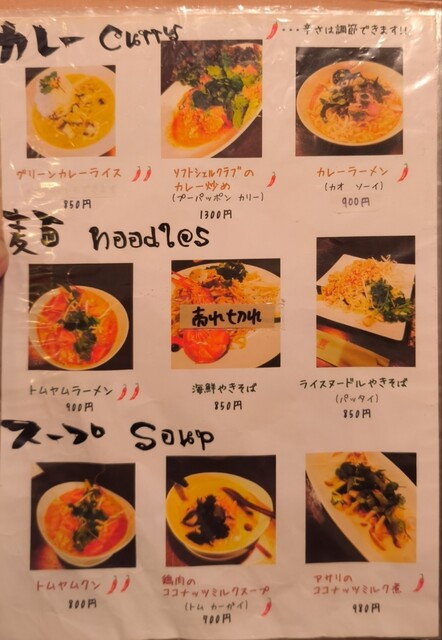 カレー Curry
・・・辛さは調節できます!!
グリーンカレーライス
850円
ソフトシェルクラブの
カレー炒め
(プーパッポン カリー)
1300円
カレーラーメン
(カオ ソーイ)
900円
麺 noodles
トムヤムラーメン
900円
売れ切れ
海鮮やきそば
850円
ライスヌードルやきそば
(パッタイ)
850円
スープ Soup
トムヤムクン
800円
鶏肉の
ココナッツミルクスープ
(トム カーガイ)
900円
アサリの
ココナッツミルク煮
980円